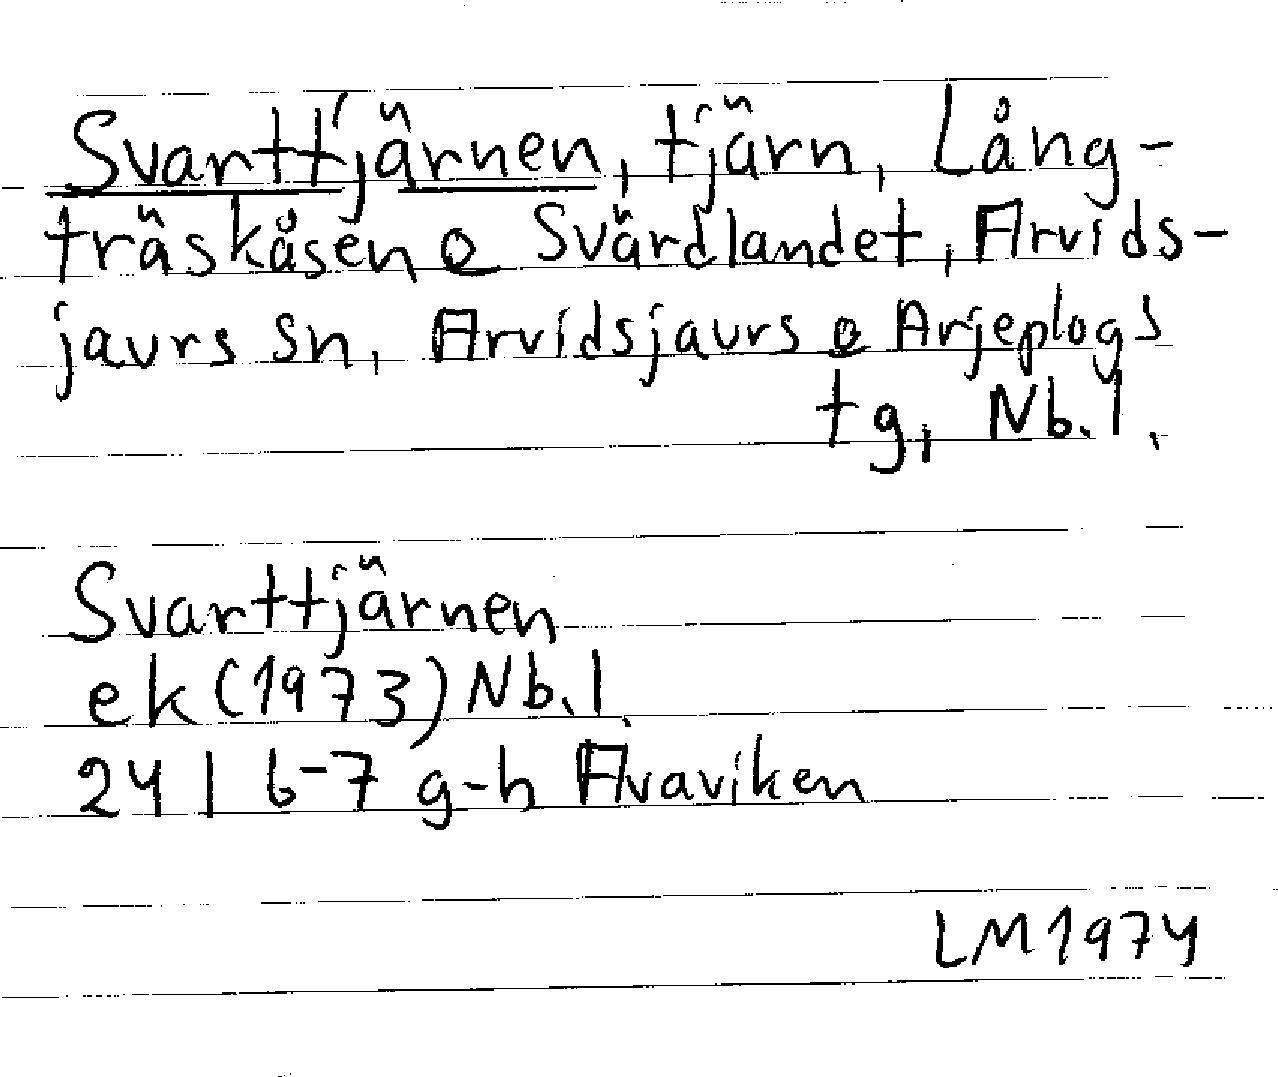 Svarttjärnen, tjärn, Lång-
träskåsen o Svärdlandet, Arvids-
jaurs sn, Arvidsjaurs o Arjeplogs
tg, Nb.l.
Svarttjärnen
ek (1973) Nb.l.
24 I 6-7 g-h Avaviken
LM 1974